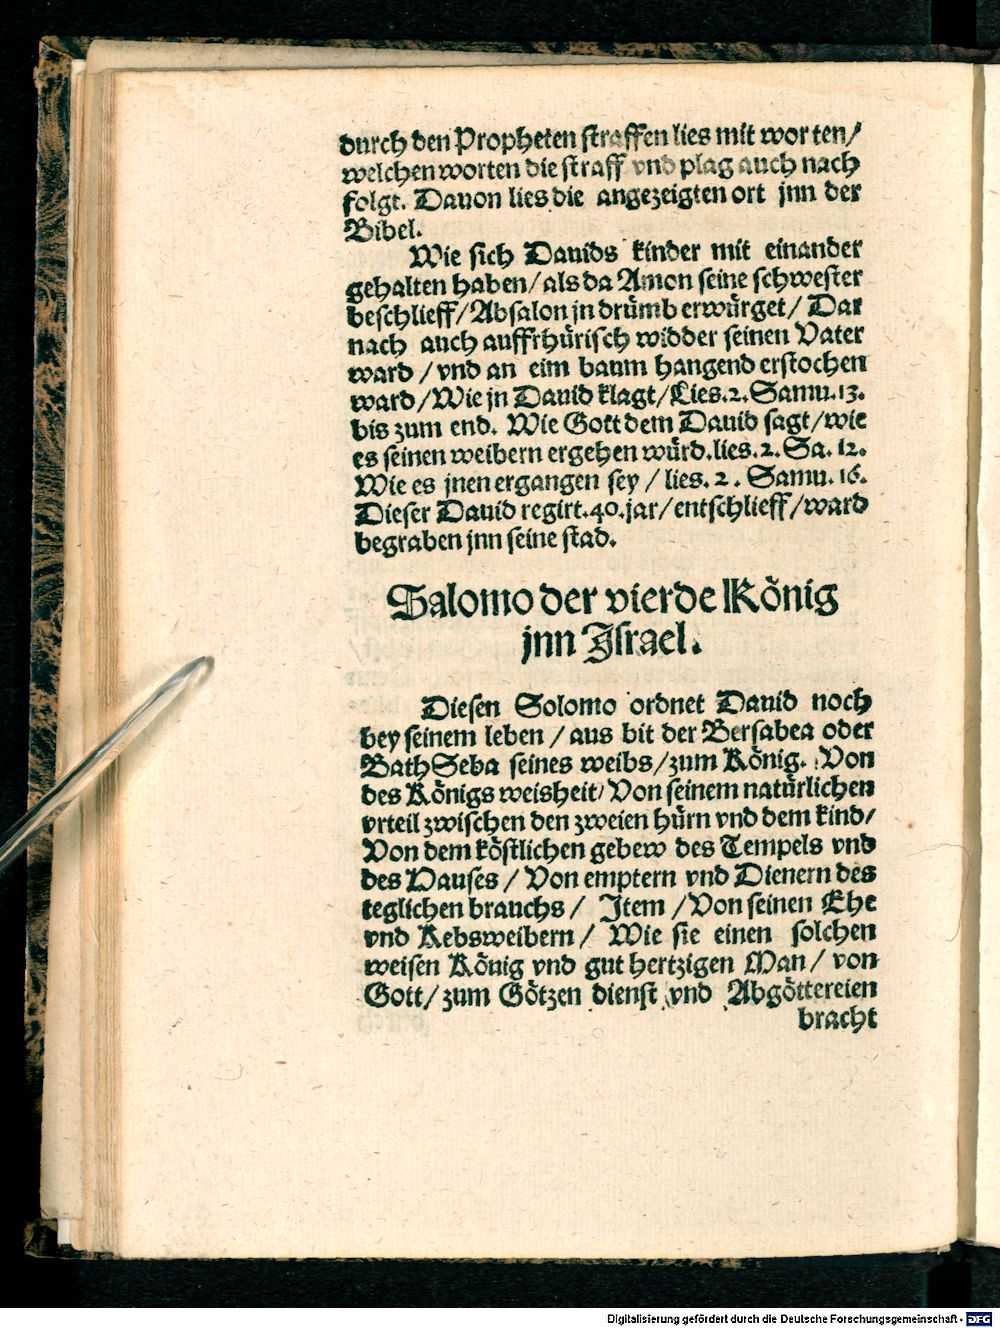 durch den Propheten straffen lies mit worten/
welchen worten die straff vnd plag auch nach
folgt. Dauon lies die angezeigten ort jnn der
Bibel.
Wie sich Dauids kinder mit einander
gehalten haben/als da Amon seine schwester
beschlieff/Absalon jn drümb erwürget/ Dar
nach auch auffrhürisch widder seinen Vater
ward /vnd an eim baum hangend erstochen
ward/Wie jn Dauid klagt/Lies.2.Samu.13.
bis zum end. Wie Gott dem Dauid sagt/wie
es seinen weibern ergehen würd.lies.2.Sa.12.
Wie es jnen ergangen sey / lies. 2. Samu. 16.
Dieser Dauid regirt.40.jar/entschlieff/ward
begraben jnn seine stad.
Salomo der vierde König
jnn Israel.
Diesen Solomo ordnet Dauid noch
bey seinem leben / aus bit der Bersabea oder
BathSeba seines weibs/zum König. Von
des Königs weisheit/Von seinem natürlichen
vrteil zwischen den zweien hürn vnd dem kind/
Von dem köstlichen gebew des Tempels vnd
des Hauses / Von emptern vnd Dienern des
teglichen brauchs / Item /Von seinen Ehe
vnd Kebsweibern / Wie sie einen solchen
weisen König vnd gut hertzigen Man/ von
Gott/zum Götzen dienst vnd Abgöttereien
bracht
Digitalisierung gefördert durch die Deutsche Forschungsgemeinschaft - DFG